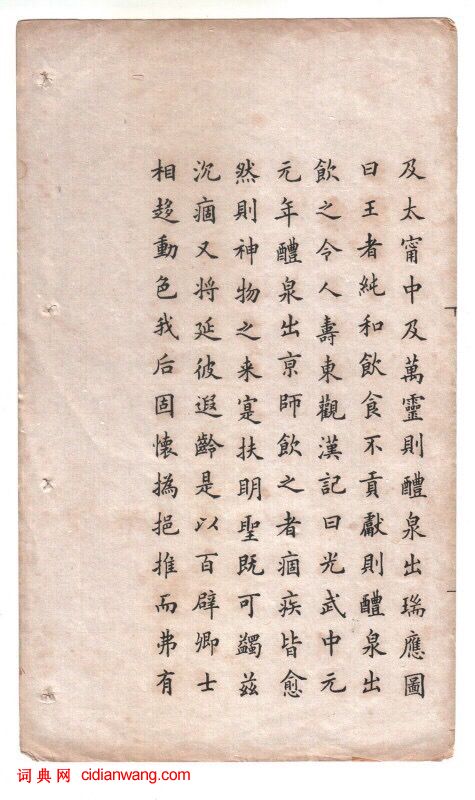 及太甯中及萬靈則醴泉出瑞應圖
曰王者純和飲食不貢獻則醴泉出
飲之令人壽東觀漢記曰光武中元
元年醴泉出京師飲之者痼疾皆愈
然則神物之来寔扶明聖既可蠲茲
沉痼又将延彼遐齡是以百辟卿士
相趍動色我后固懷撝挹推而弗有
词典网 cidianwang.com